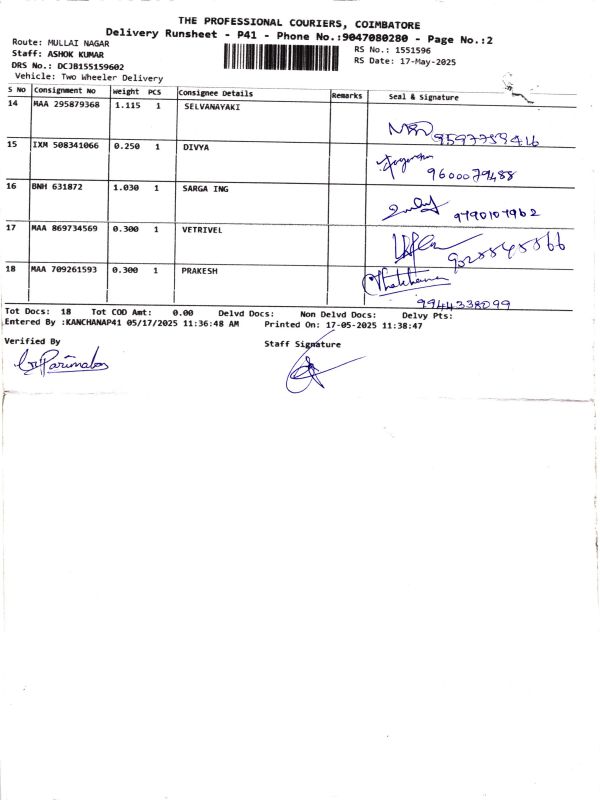 THE PROFESSIONAL COURIERS, COIMBATORE
Delivery Runsheet - P41 - Phone No.:9047080280 - Page No.:2
Route: MULLAI NAGAR
RS No.: 1551596
Staff: ASHOK KUMAR
RS Date: 17-May-2025
DRS No.: DCJB155159602
Vehicle: Two Wheeler Delivery
S No Consignment No Weight PCS Consignee Details Remarks Seal & Signature
14 MAA 295879368 1.115 1 SELVANAYAKI
15 IXM 508341066 0.250 1 DIVYA
9600079488
16 BNH 631872 1.030 1 SARGA ING
9790107962
17 MAA 869734569 0.300 1 VETRIVEL
18 MAA 709261593 0.300 1 PRAKESH
9944338099
Tot Docs: 18 Tot COD Amt: 0.00 Delvd Docs: Non Delvd Docs: Delvy Pts:
Entered By :KANCHANAP41 05/17/2025 11:36:48 AM Printed On: 17-05-2025 11:38:47
Verified By Staff Signature